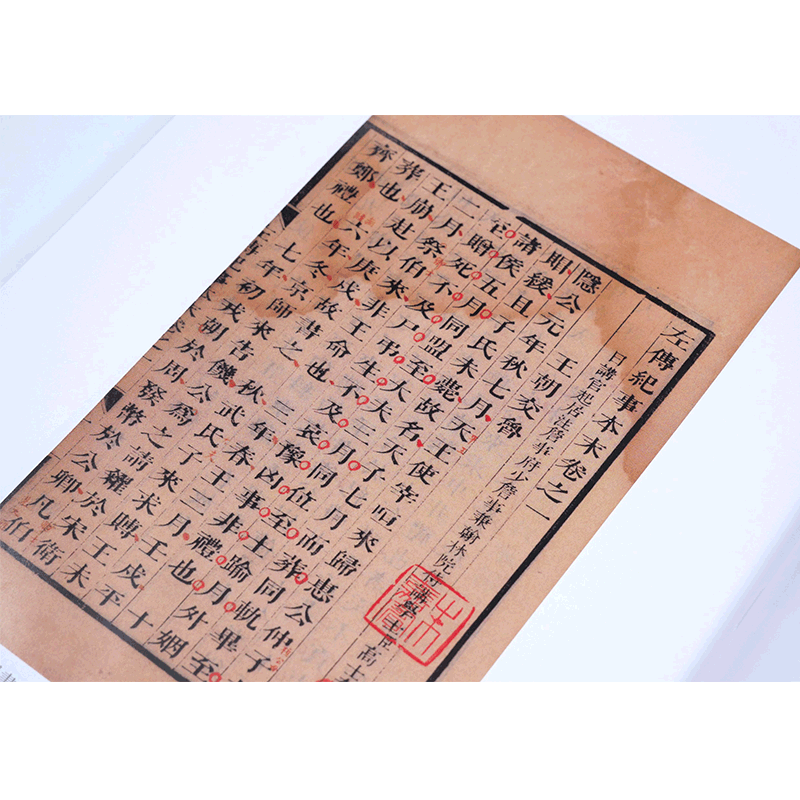 左傳紀事本末卷之一
日講官起居注詹事府少詹事兼翰林院侍講學士臣高士
王朝交魯
隱公元年秋七月天王使宰咺來歸惠公仲子
賵緩且子氏未薨故名天子七月而葬同軌畢
至諸侯五月同盟至大夫三月同位至士踰月外姻至
贈死不及尸弔生不及哀豫凶事非禮也十
二月祭伯來非王命也三年春王三月壬戌平
王崩赴以庚戌故書之秋武氏子來求賻王未
葬也六年冬京師來告饑公爲之請糴於宋衛
齊鄭禮也七年初戎朝於周發幣於公卿凡伯